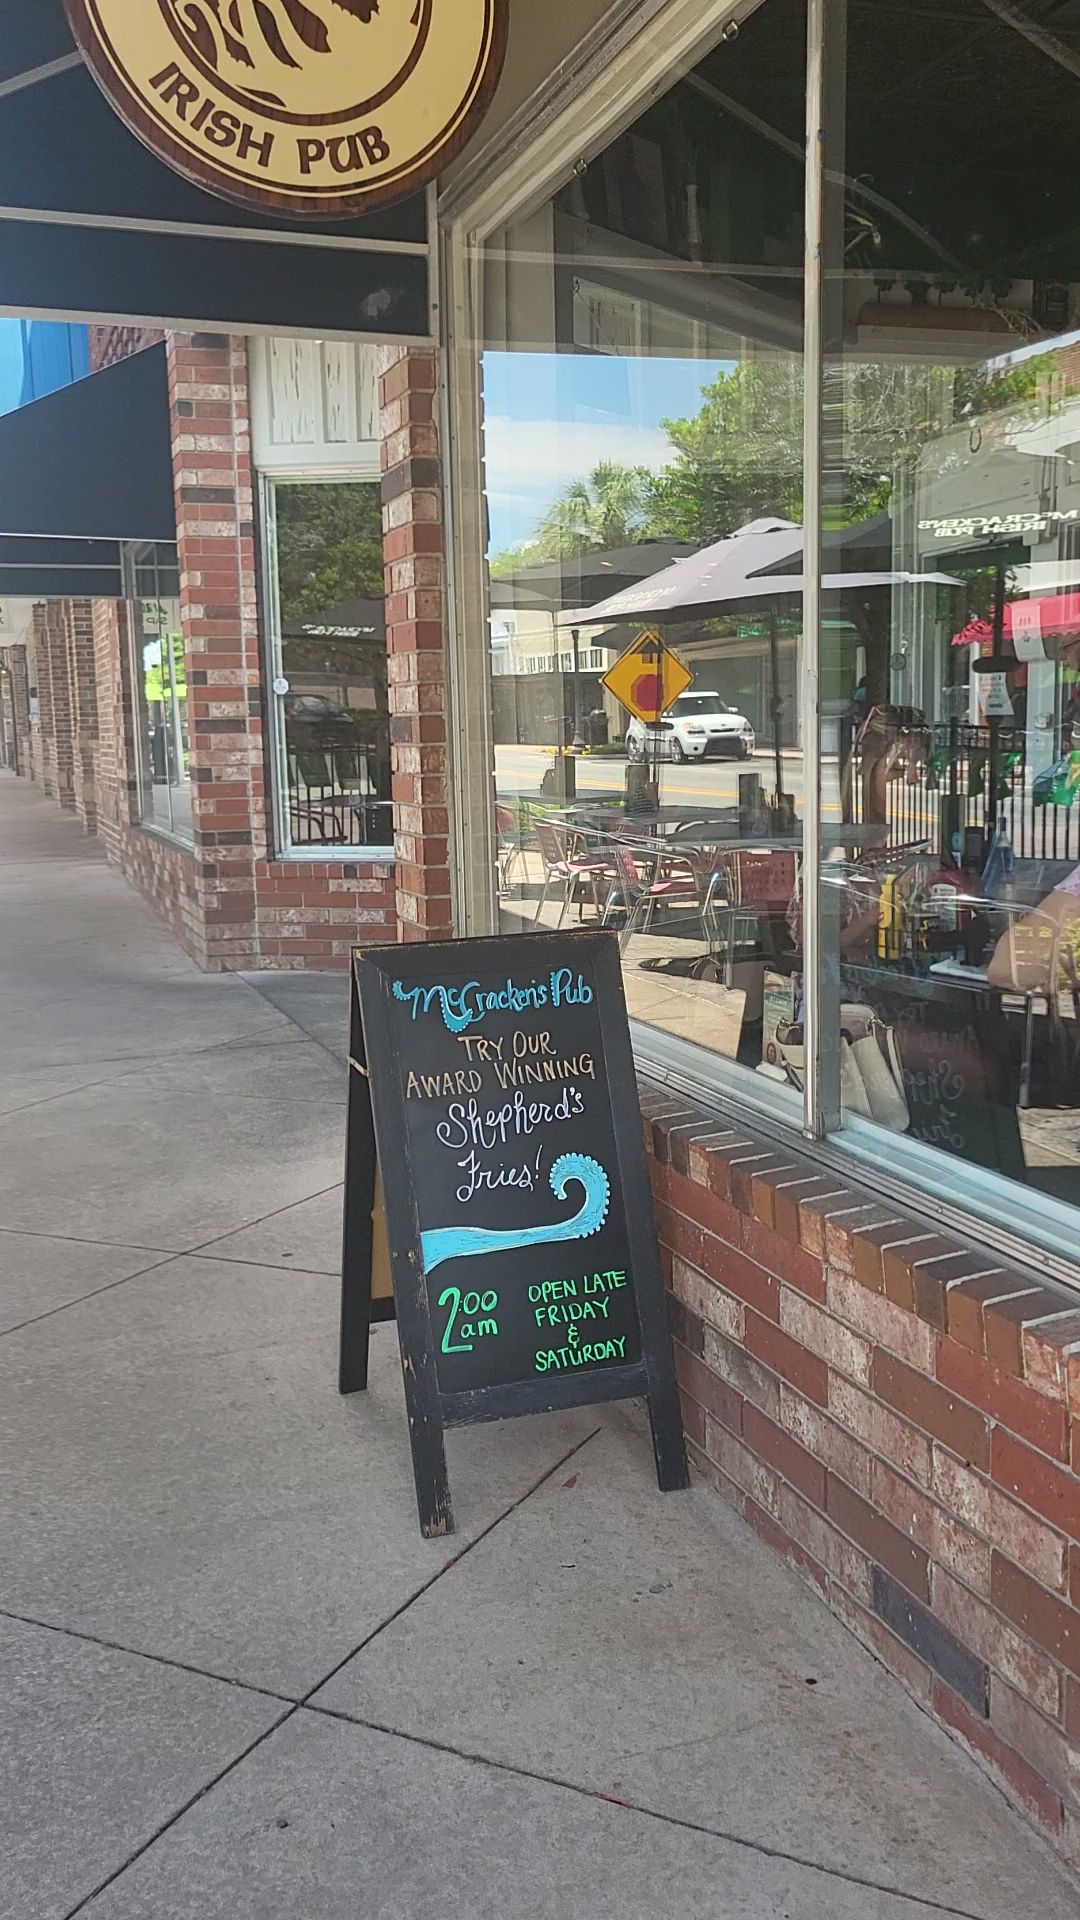 IRISH PUB
McCracken's Pub
TRY OUR
AWARD WINNING
Shepherd's
Fries!
2:00
am
OPEN LATE
FRIDAY
&
SATURDAY
McCRACKEN'S
IRISH PUB